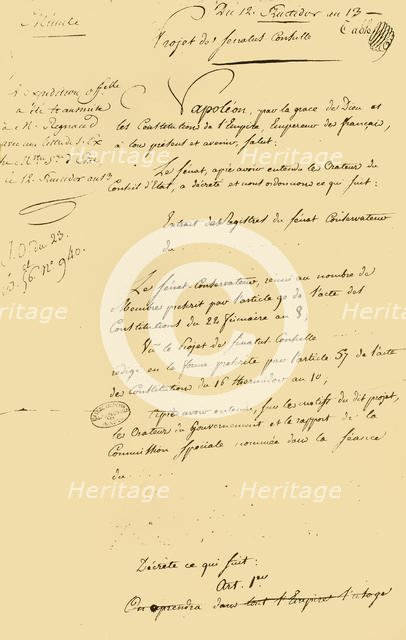 Minute
Du 12 Fructidor an 13
Projet de Sénatus Consulte
L'expédition
a été transmise
à M. Regnaud
le 12 Fructidor an 13
J. O. du 23.
et
56. N° 940.
Napoléon, par la grace de Dieu et
les Constitutions de l'Empire, Empereur des français,
à tous présent et avenir, salut:
Le Sénat, après avoir entendu les Orateurs du
Conseil d'Etat, a décrété et nous ordonnons ce qui suit:
Extrait des Registres du Sénat Conservateur
du
Le Sénat-Conservateur, réuni au nombre de
Membres prescrit par l'article 90 de l'acte des
Constitutions du 22 frimaire an 8;
Vu le Projet de Senatus Consulte
rédigé en la forme prescrite par l'article 57 de l'acte
des Constitutions du 16 thermidor an 10;
après avoir entendu, sur les motifs du dit projet,
les Orateurs du Gouvernement et le rapport de la
Commission Spéciale nommée dans la séance
du
Décrète ce qui suit:
Art. 1er
On reprendra dans tout l'Empire l'usage
Heritage
Heritage
Heritage
Heritage
Heritage
Heritage